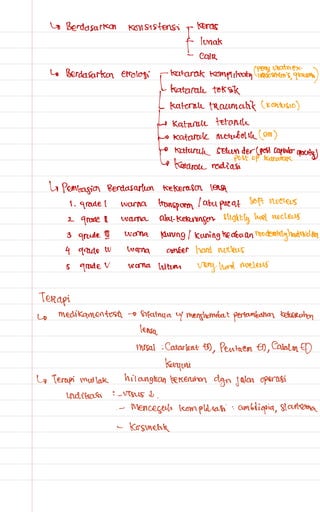 ↳ Berdasarkan konsistensi - keras
- lunak
- cair
↳ Berdasarkan etiologi - katarak komplikata
- katarak toksik
- katarak traumatik
→ katarak tetanik
→ katarak metabolik (DM)
→ katarak sekunder
post op katarak
→ katarak radiasi
↳ Pembagian Berdasarkan kekerasan lensa
1. grade I warna transparan / abu pucat soft nucleus
2 grade II warna abu-kekuningan slightly hard nucleus
3 grade III warna kuning / kuning keabuan moderately hard
4 grade IV warna amber hard nucleus
5 grade V warna hitam very hard nucleus
Terapi
↳ medikamentosa → sifatnya u/ menghambat pertambahan kekeruhan
lensa
misal : Catarlent ED, ED, Catalin ED
↳ Terapi mutlak hilangkan kekeruhan dgn jalan operasi
Indikasi : - visus 2
- Mencegah komplikasi : ambliopia, glaukoma
- Kosmetik